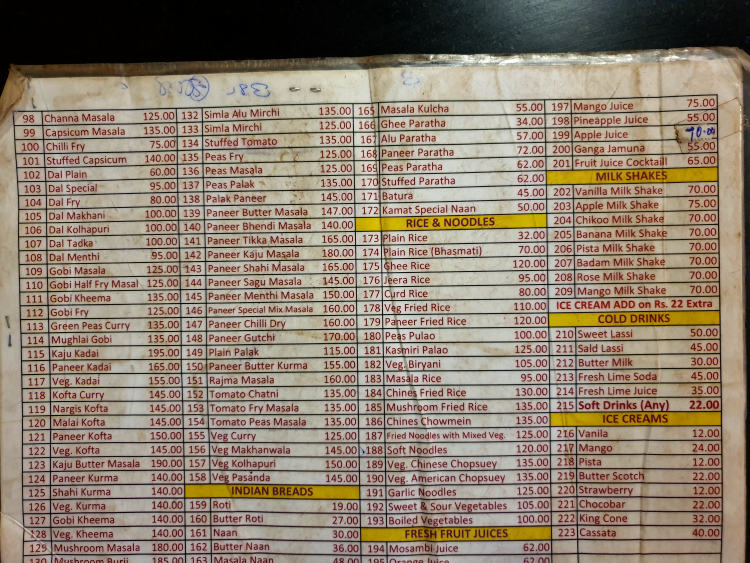 98 Channa Masala 125.00
99 Capsicum Masala 135.00
100 Chilli Fry 75.00
101 Stuffed Capsicum 140.00
102 Dal Plain 60.00
103 Dal Special 95.00
104 Dal Fry 80.00
105 Dal Makhani 100.00
106 Dal Kolhapuri 100.00
107 Dal Tadka 100.00
108 Dal Menthi 95.00
109 Gobi Masala 125.00
110 Gobi Half Fry Masal 125.00
111 Gobi Kheema 135.00
112 Gobi Fry 125.00
113 Green Peas Curry 135.00
114 Mughlai Gobi 135.00
115 Kaju Kadai 195.00
116 Paneer Kadai 165.00
117 Veg. Kadai 155.00
118 Kofta Curry 145.00
119 Nargis Kofta 145.00
120 Malai Kofta 145.00
121 Paneer Kofta 150.00
122 Veg. Kofta 145.00
123 Kaju Butter Masala 190.00
124 Paneer Kurma 140.00
125 Shahi Kurma 140.00
126 Veg. Kurma 140.00
127 Gobi Kheema 140.00
128 Veg. Kheema 140.00
129 Mushroom Masala 180.00
130 Mushroom Burji 185.00
132 Simla Alu Mirchi 135.00
133 Simla Mirchi 125.00
134 Stuffed Tomato 135.00
135 Peas Fry 125.00
136 Peas Masala 125.00
137 Peas Palak 135.00
138 Palak Paneer 145.00
139 Paneer Butter Masala 147.00
140 Paneer Bhendi Masala 140.00
141 Paneer Tikka Masala 165.00
142 Paneer Kaju Masala 180.00
143 Paneer Shahi Masala 165.00
144 Paneer Sagu Masala 145.00
145 Paneer Menthi Masala 150.00
146 Paneer Special Mix Masala 160.00
147 Paneer Chilli Dry 160.00
148 Paneer Gutchi 170.00
149 Plain Palak 115.00
150 Paneer Butter Kurma 155.00
151 Rajma Masala 160.00
152 Tomato Chatni 135.00
153 Tomato Fry Masala 135.00
154 Tomato Peas Masala 135.00
155 Veg Curry 125.00
156 Veg Makhanwala 145.00
157 Veg Kolhapuri 150.00
158 Veg Pasanda 145.00
INDIAN BREADS
159 Roti 19.00
160 Butter Roti 27.00
161 Naan 30.00
162 Butter Naan 36.00
163 Masala Naan 48.00
165 Masala Kulcha 55.00
166 Ghee Paratha 34.00
167 Alu Paratha 57.00
168 Paneer Paratha 72.00
169 Peas Paratha 62.00
170 Stuffed Paratha 62.00
171 Batura 45.00
172 Kamat Special Naan 50.00
RICE & NOODLES
173 Plain Rice 32.00
174 Plain Rice (Bhasmati) 70.00
175 Ghee Rice 120.00
176 Jeera Rice 95.00
177 Curd Rice 80.00
178 Veg Fried Rice 110.00
179 Paneer Fried Rice 120.00
180 Peas Pulao 100.00
181 Kasmiri Palao 125.00
182 Veg. Biryani 105.00
183 Masala Rice 95.00
184 Chines Fried Rice 130.00
185 Mushroom Fried Rice 135.00
186 Chines Chowmein 135.00
187 Fried Noodles with Mixed Veg. 125.00
188 Soft Noodles 120.00
189 Veg. Chinese Chopsuey 135.00
190 Veg. American Chopsuey 135.00
191 Garlic Noodles 125.00
192 Sweet & Sour Vegetables 105.00
193 Boiled Vegetables 100.00
FRESH FRUIT JUICES
194 Mosambi Juice 62.00
195 Orange Juice 62.00
197 Mango Juice 75.00
198 Pineapple Juice 55.00
199 Apple Juice 90.00
200 Ganga Jamuna 55.00
201 Fruit Juice Cocktail 65.00
MILK SHAKES
202 Vanilla Milk Shake 70.00
203 Apple Milk Shake 75.00
204 Chikoo Milk Shake 70.00
205 Banana Milk Shake 70.00
206 Pista Milk Shake 70.00
207 Badam Milk Shake 70.00
208 Rose Milk Shake 70.00
209 Mango Milk Shake 70.00
ICE CREAM ADD on Rs. 22 Extra
COLD DRINKS
210 Sweet Lassi 50.00
211 Sald Lassi 45.00
212 Butter Milk 30.00
213 Fresh Lime Soda 45.00
214 Fresh Lime Juice 35.00
215 Soft Drinks (Any) 22.00
ICE CREAMS
216 Vanila 12.00
217 Mango 24.00
218 Pista 12.00
219 Butter Scotch 22.00
220 Strawberry 12.00
221 Chocobar 22.00
222 King Cone 32.00
223 Cassata 40.00